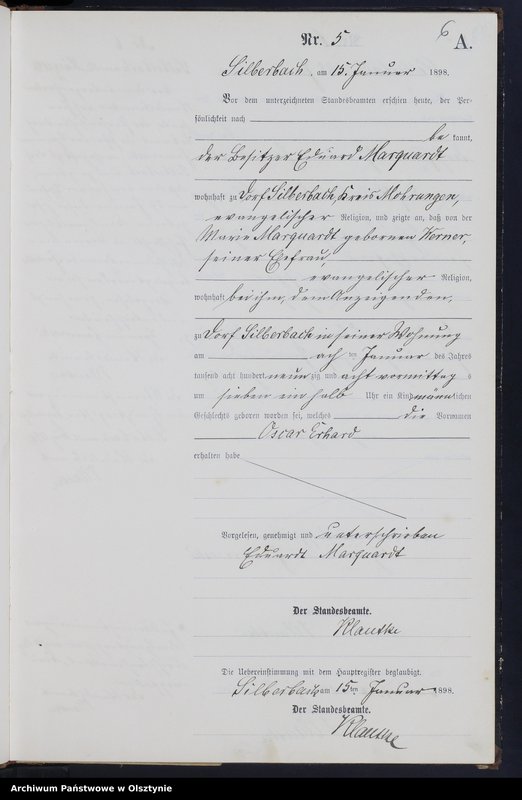 6
Nr. 5
A.
Silberbach, am 15. Januar 1898.
Vor dem unterzeichneten Standesbeamten erschien heute, der Per-
sönlichkeit nach
be kannt,
der Besitzer Eduard Marquardt
wohnhaft zu Dorf Silberbach, Kreis Mohrungen,
evangelischer Religion, und zeigte an, daß von der
Marie Marquardt gebornen Werner,
seiner Ehefrau,
evangelischer Religion,
wohnhaft bei ihm, dem Anzeigenden,
zu Dorf Silberbach in seiner Wohnung
am ach ten Januar des Jahres
tausend acht hundert neun zig und acht vormittag s
um sieben ein halb Uhr ein Kind männ lichen
Geschlechts geboren worden sei, welches die Vornamen
Oscar Erhard
erhalten habe
Vorgelesen, genehmigt und unterschrieben
Eduardt Marquardt
Der Standesbeamte.
Klautke
Die Uebereinstimmung mit dem Hauptregister beglaubigt.
Silberbach am 15ten Januar 1898.
Der Standesbeamte.
Klautke
Archiwum Państwowe w Olsztynie